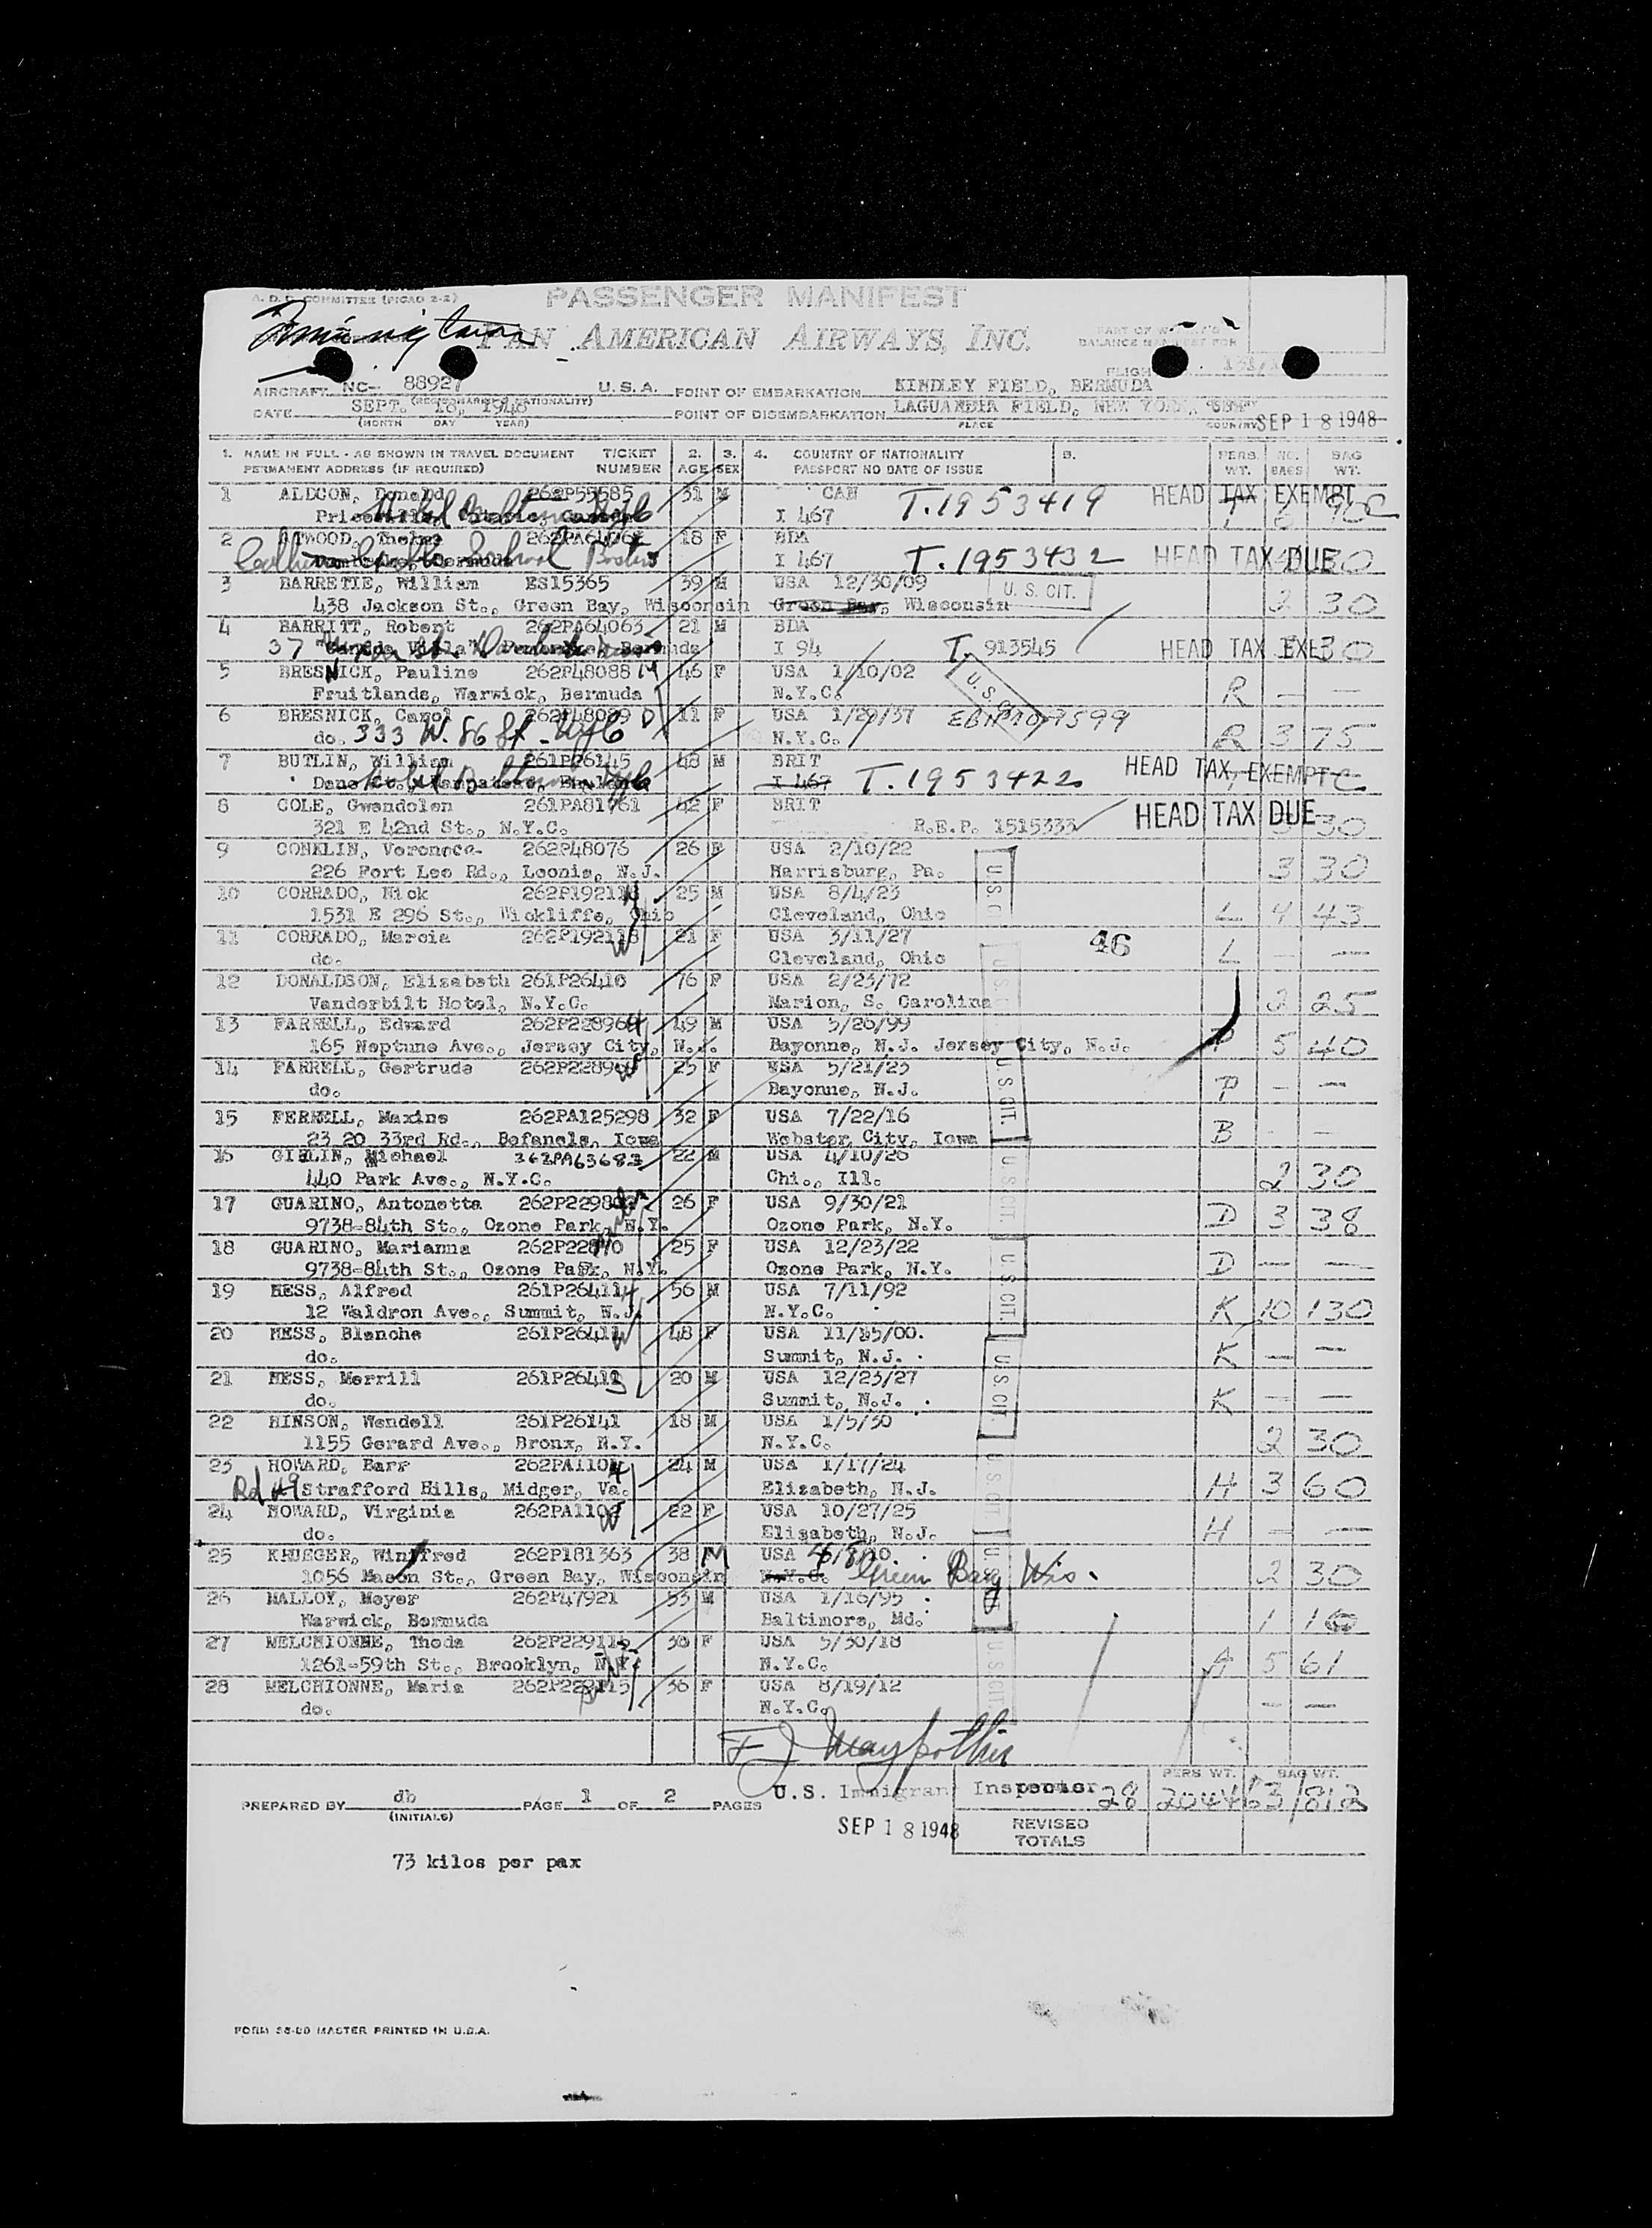 A. D. C. COMMITTEE (PICAO 2-2)
PASSENGER MANIFEST
PAN AMERICAN AIRWAYS, INC.
AIRCRAFT NC- 88927 U.S.A. POINT OF EMBARKATION KINDLEY FIELD, BERMUDA
DATE SEPT. 18, 1948 POINT OF DISEMBARKATION LAGUARDIA FIELD, NEW YORK, SEP 18 1948
(MONTH DAY YEAR) PLACE COUNTRY
1. NAME IN FULL - AS SHOWN IN TRAVEL DOCUMENT TICKET 2. 3. 4. COUNTRY OF NATIONALITY 5. PERS. NO. BAG
PERMANENT ADDRESS (IF REQUIRED) NUMBER AGE SEX PASSPORT NO DATE OF ISSUE WT. BAGS WT.
1 ALDCON, Donald 262P55585 31 M CAN T.1953419 HEAD TAX EXEMPT
I 467
2 18 F BDA
I 467 T.1953432 HEAD TAX DUE 30
3 BARRETTE, William ES15365 39 M USA 12/30/09 U.S. CIT.
438 Jackson St., Green Bay, Wisconsin Green Bay, Wisconsin 2 30
4 BARRITT, Robert 262PA64063 21 M BDA
37 I 94 T. 913545 HEAD TAX EXE 30
5 BRESNICK, Pauline 262P48088 46 F USA 1/10/02 U.S.
Fruitlands, Warwick, Bermuda N.Y.C. R — —
6 BRESNICK, Carol 262P48089 11 F USA 1/29/37
do. 333 W. 86 St. N.Y.C. R 3 75
7 BUTLIN, William 261P26145 48 M BRIT HEAD TAX EXEMPT
I 467 T.1953422
8 COLE, Gwendolen 261PA81761 42 F BRIT HEAD TAX DUE
321 E 42nd St., N.Y.C. R.E.P. 1515333 30
9 CONKLIN, Veroneca 262P48076 26 F USA 2/10/22
226 Fort Lee Rd., Leonia, N.J. Harrisburg, Pa. 3 30
10 CORRADO, Nick 25 M USA 8/4/23
1531 E 296 St., Wickliffe, Ohio Cleveland, Ohio L 4 43
11 CORRADO, Marcia 21 F USA 3/11/27 46
do. Cleveland, Ohio L — —
12 DONALDSON, Elizabeth 261P26410 76 F USA 2/23/72
Vanderbilt Hotel, N.Y.C. Marion, S. Carolina 2 25
13 FARRELL, Edward 262P228964 49 M USA 5/26/99
165 Neptune Ave., Jersey City, N.J. Bayonne, N.J. Jersey City, N.J. P 5 40
14 FARRELL, Gertrude 25 F USA 5/21/23
do. Bayonne, N.J. P — —
15 FERRELL, Maxine 262PA125298 32 F USA 7/22/16
23 20 33rd Rd., Iowa Webster City, Iowa B — —
16 Michael 262PA63683 22 M USA 4/10/26
440 Park Ave., N.Y.C. Chi., Ill. 2 30
17 GUARINO, Antonetta 26 F USA 9/30/21
9738-84th St., Ozone Park, N.Y. Ozone Park, N.Y. D 3 38
18 GUARINO, Marianna 25 F USA 12/23/22
9738-84th St., Ozone Park, N.Y. Ozone Park, N.Y. D — —
19 HESS, Alfred 56 M USA 7/11/92
12 Waldron Ave., Summit, N.J. N.Y.C. K 10 130
20 HESS, Blanche 48 F USA 11/15/00.
do. Summit, N.J. K — —
21 HESS, Merrill 20 M USA 12/23/27
do. Summit, N.J. K — —
22 HINSON, Wendell 261P26141 18 M USA 1/5/30
1155 Gerard Ave., Bronx, N.Y. N.Y.C. 2 30
23 HOWARD, Barr 24 M USA 1/17/24
Rd #9 Strafford Hills, Midger, Va. Elizabeth, N.J. H 3 60
24 HOWARD, Virginia 22 F USA 10/27/25
do. Elizabeth, N.J. H — —
25 KRUEGER, Winifred 262P181363 38 M USA 4/8/10
1056 Mason St., Green Bay, Wisconsin N.Y.C. Green Bay Wis. 2 30
26 MALLOY, Meyer 262P47921 53 M USA 1/16/95
Warwick, Bermuda Baltimore, Md. 1 16
27 MELCHIONNE, Thoda 30 F USA 5/30/18
1261-59th St., Brooklyn, N.Y. N.Y.C. A 5 61
28 MELCHIONNE, Maria 36 F USA 8/19/12
do. N.Y.C. — —
PERS WT. BAG WT.
PREPARED BY db PAGE 1 OF 2 PAGES U.S. Immigrant Inspector 28 2044 63 812
(INITIALS)
SEP 18 1948 REVISED
TOTALS
73 kilos per pax
FORM 38-80 MASTER PRINTED IN U.S.A.